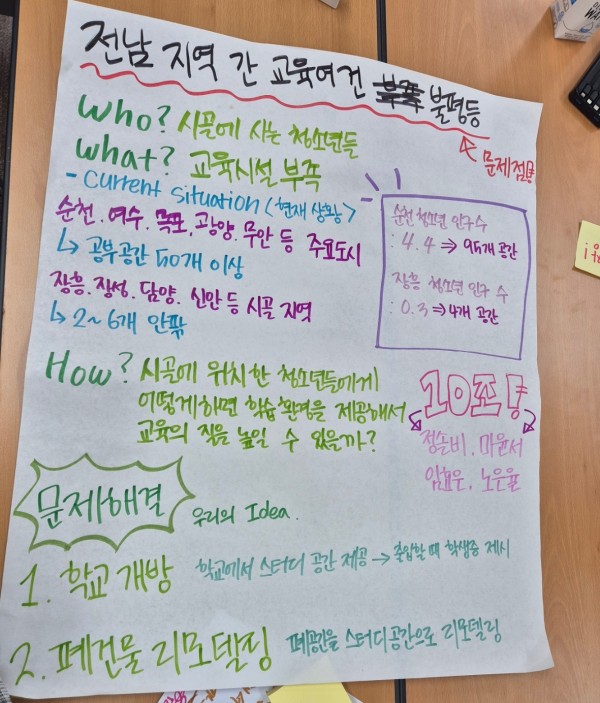 전남 지역 간 교육여건 불평등
문제점!
Who? 시골에 사는 청소년들
What? 교육시설 부족
- Current situation (현재 상황>
순천. 여수. 목포. 광양. 무안 등 주요도시
↳ 공부공간 50개 이상
장흥. 장성. 담양. 신안 등 시골 지역
↳ 2~6개 안팎
순천 청소년 인구수
: 4.4 ⇒ 95개 공간
장흥 청소년 인구 수
: 0.3 ⇒ 4개 공간
How? 시골에 위치한 청소년들에게
어떻게하면 학습환경을 제공해서
교육의 질을 높일 수 있을까?
10조!
정솔비. 마윤서
임효운. 노은율
문제해결
우리의 Idea.
1. 학교 개방 학교에서 스터디 공간 제공 → 출입할 때 학생증 제시
2. 폐건물 리모델링 폐공간을 스터디공간으로 리모델링